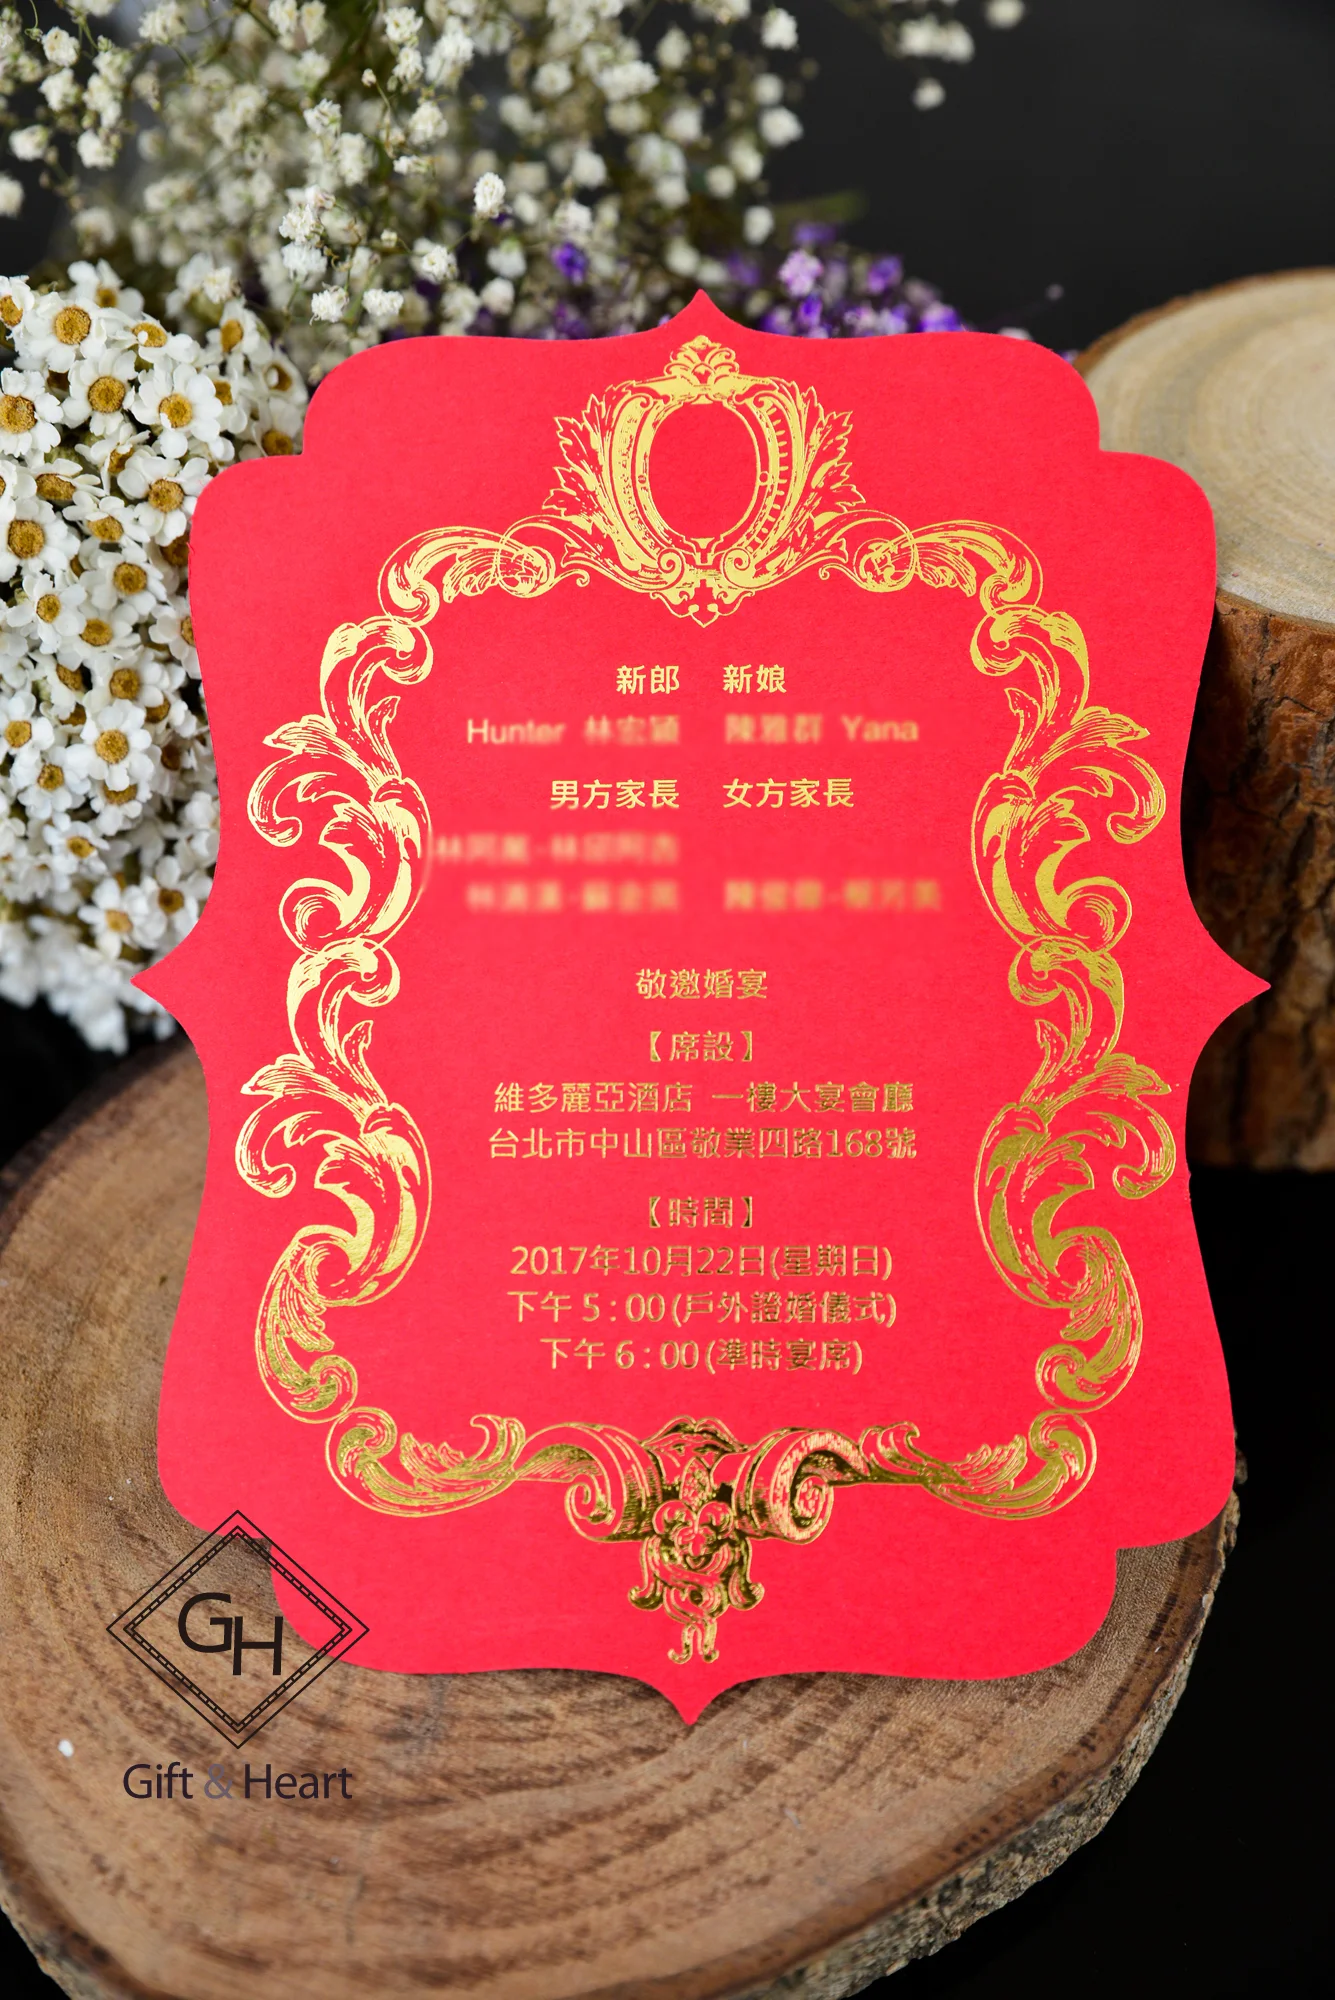 新郎 新娘
Hunter 林宏 陳雅群 Yana
男方家長 女方家長
敬邀婚宴
【席設】
維多麗亞酒店 一樓大宴會廳
台北市中山區敬業四路168號
【時間】
2017年10月22日(星期日)
下午 5 : 00 (戶外證婚儀式)
下午 6 : 00 (準時宴席)
GH
Gift & Heart